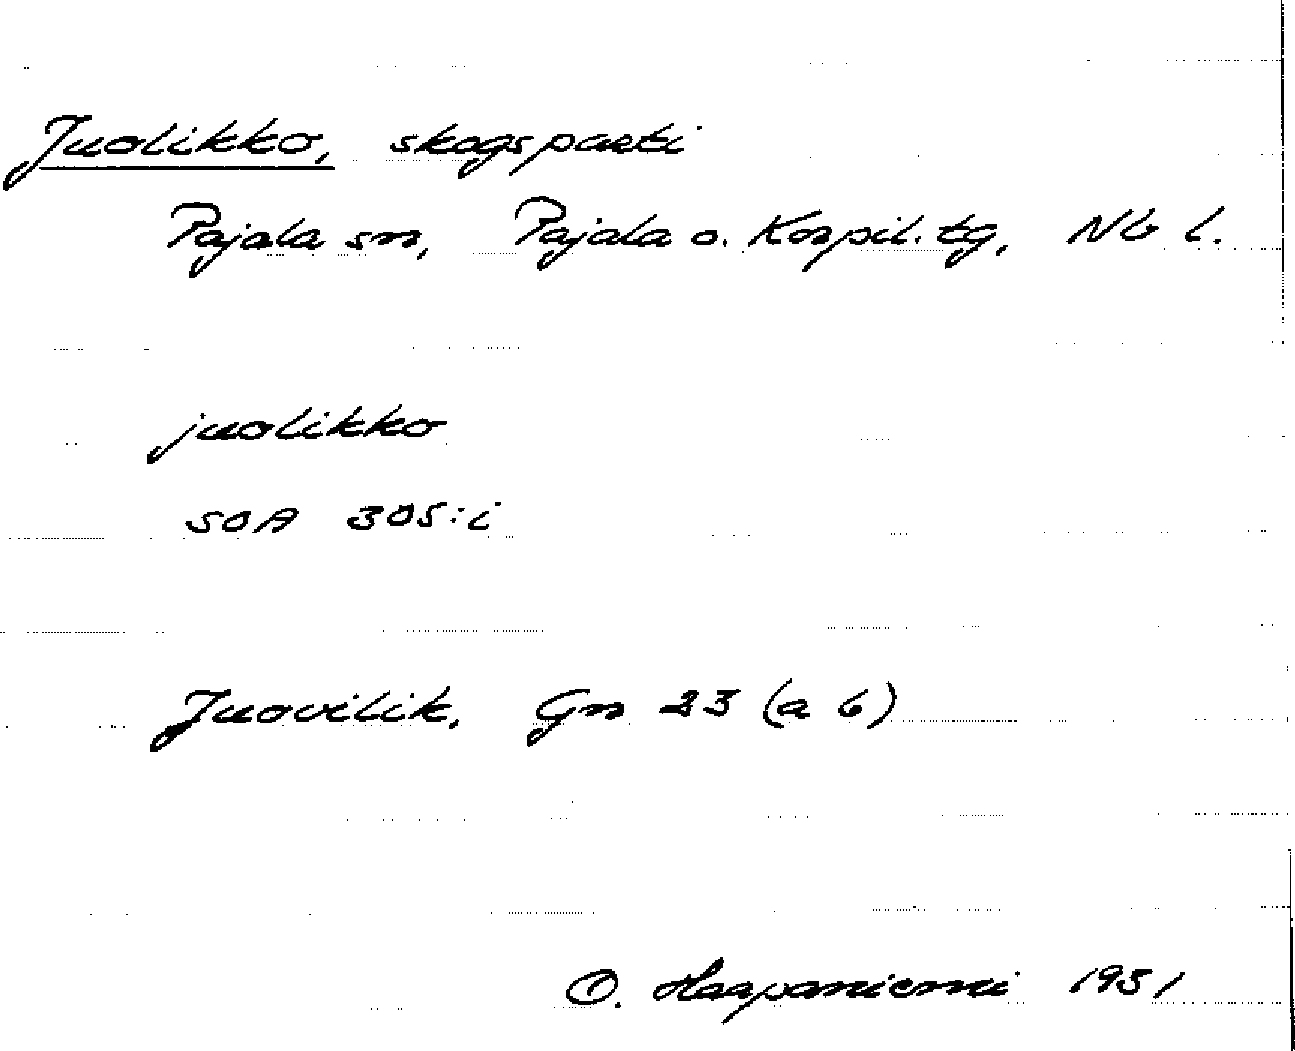 Juolikko, skogsparti
Pajala sn, Pajala o. Korpil. tg, Nb l.
juolikko
SOA 305:i
Juovilik, Gn 23 (a b)
O. Haapaniemi 1951